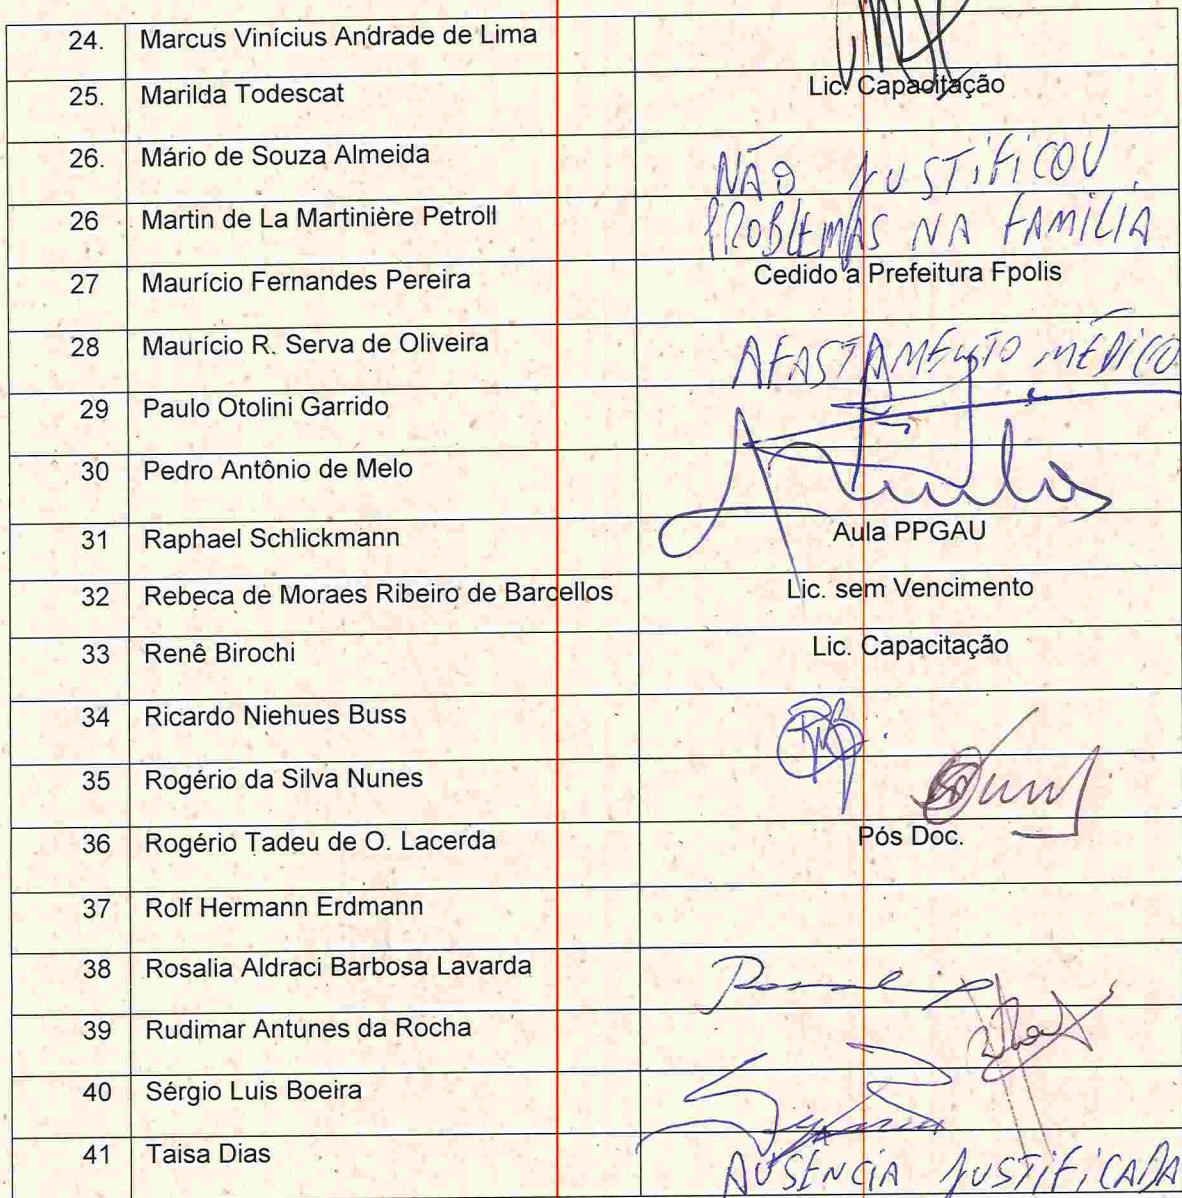 24. Marcus Vinícius Andrade de Lima
25. Marilda Todescat Lic. Capacitação
26. Mário de Souza Almeida NÃO JUSTIFICOU
26 Martin de La Martinière Petroll PROBLEMAS NA FAMÍLIA
27 Maurício Fernandes Pereira Cedido a Prefeitura Fpolis
28 Maurício R. Serva de Oliveira AFASTAMENTO MÉDICO
29 Paulo Otolini Garrido
30 Pedro Antônio de Melo
31 Raphael Schlickmann Aula PPGAU
32 Rebeca de Moraes Ribeiro de Barcellos Lic. sem Vencimento
33 Renê Birochi Lic. Capacitação
34 Ricardo Niehues Buss
35 Rogério da Silva Nunes
36 Rogério Tadeu de O. Lacerda Pós Doc.
37 Rolf Hermann Erdmann
38 Rosalia Aldraci Barbosa Lavarda Rosalia
39 Rudimar Antunes da Rocha
40 Sérgio Luis Boeira
41 Taisa Dias AUSÊNCIA JUSTIFICADA